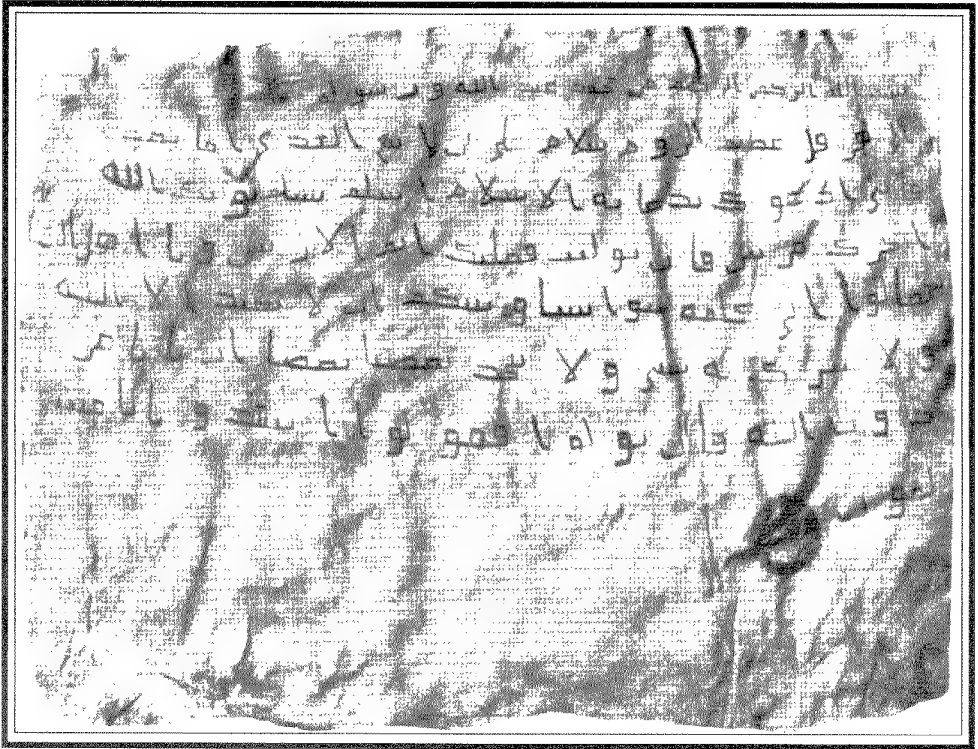 الله الرحمن الرحيم من محمد عبد الله ورسوله
هرقل عظيم الروم سلام على من اتبع الهدى اما بعد
فانى ادعوك بدعاية الاسلام اسلم تسلم يوتك الله
اجرك مرتين فان توليت فعليك اثم ويا اهل الك
تعالوا الى كلمة سوا بيننا وبينكم الا نعبد الا الله
ولا نشرك به ولا يتخذ بعضنا بعضا اربابا من
دون الله فان تولوا فقولوا اشهدوا بانا مسل
مون